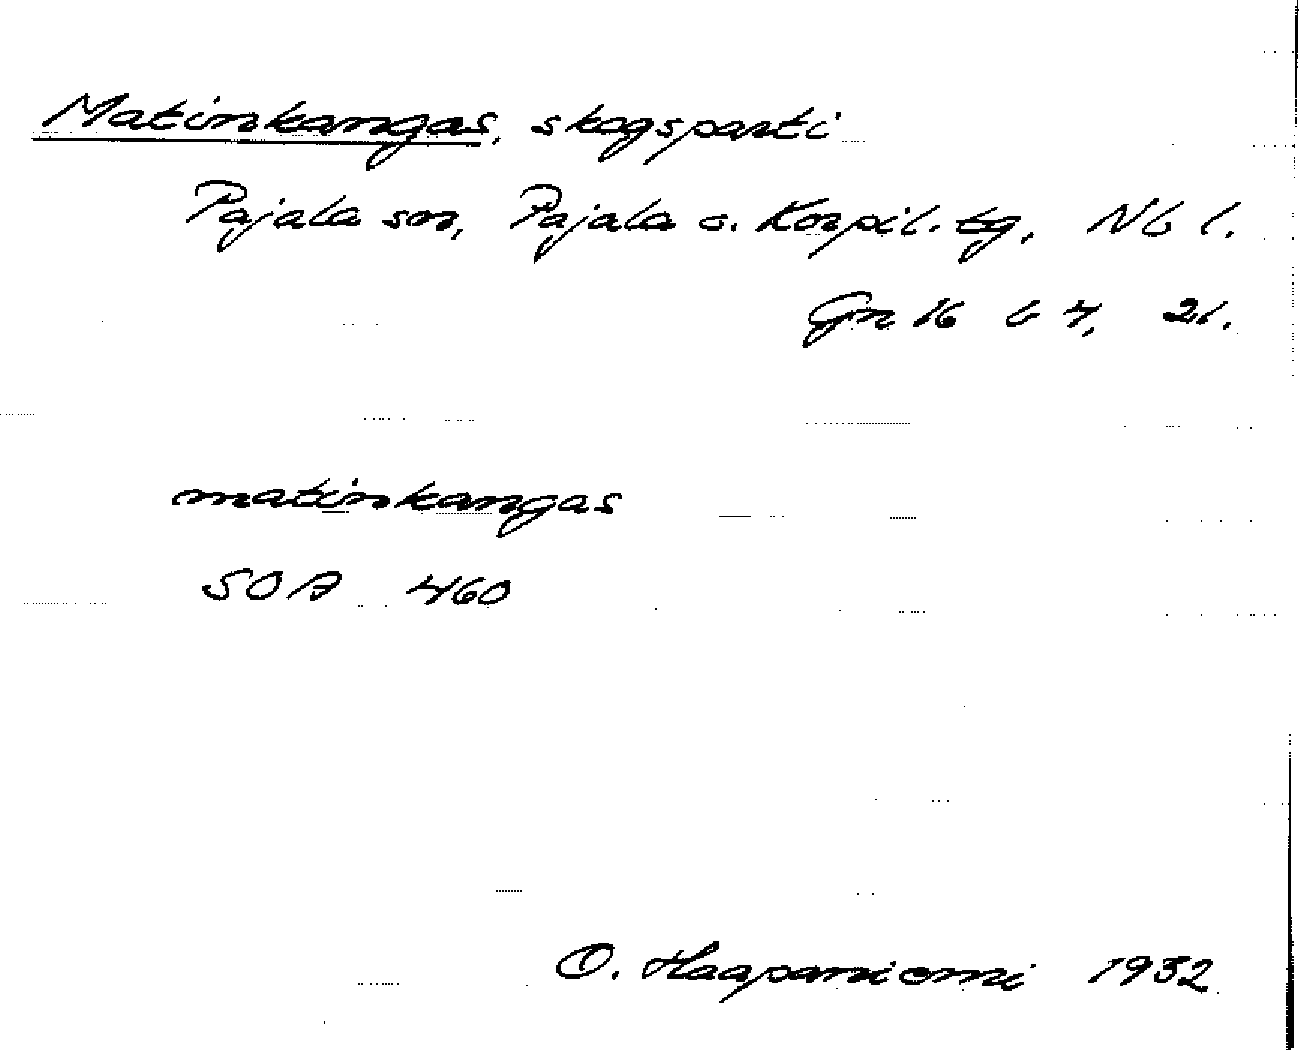 Matinkangas, skogsparti
Pajala sn, Pajala o. Korpil. tg. Nb l.
Gr 16 b 4, 21.
matinkangas
SOA 460
O. Haapaniemi 1932